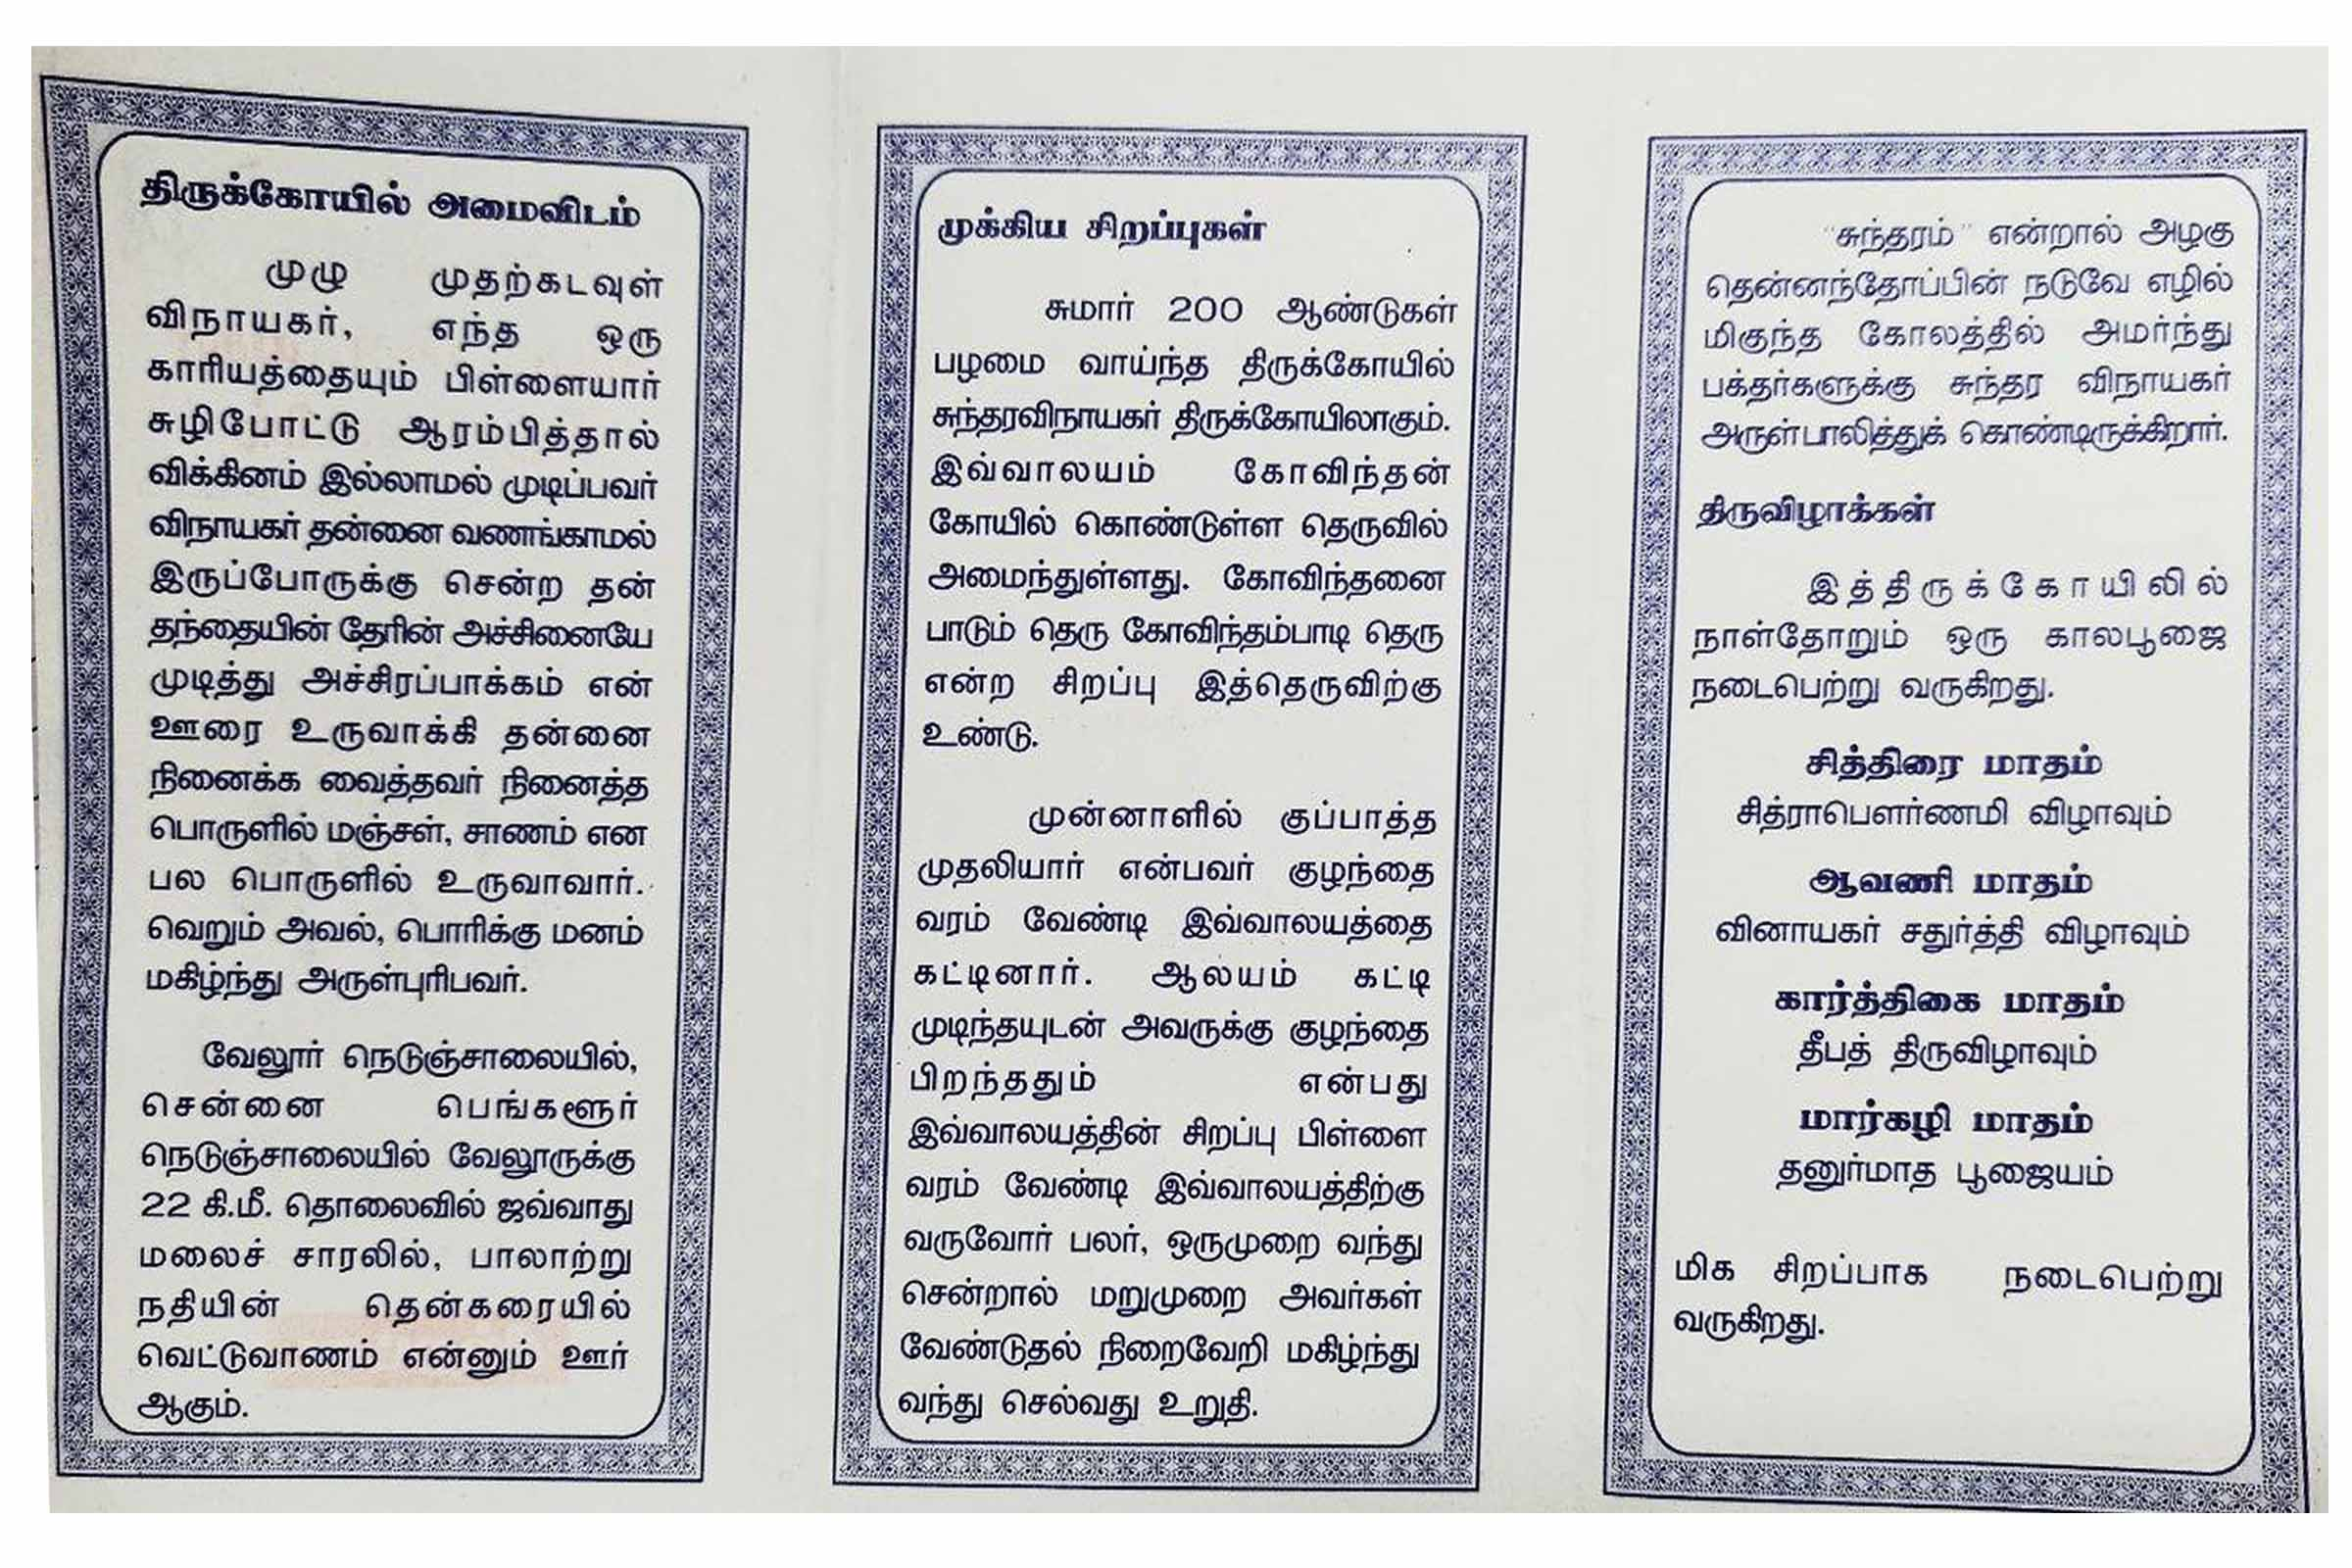 திருக்கோயில் அமைவிடம்
முழு முதற்கடவுள்
விநாயகர், எந்த ஒரு
காரியத்தையும் பிள்ளையார்
சுழிபோட்டு ஆரம்பித்தால்
விக்கினம் இல்லாமல் முடிப்பவர்
விநாயகர் தன்னை வணங்காமல்
இருப்போருக்கு சென்ற தன்
தந்தையின் தேரின் அச்சினையே
முடித்து அச்சிரப்பாக்கம் என்
ஊரை உருவாக்கி தன்னை
நினைக்க வைத்தவர் நினைத்த
பொருளில் மஞ்சள், சாணம் என
பல பொருளில் உருவாவார்.
வெறும் அவல், பொரிக்கு மனம்
மகிழ்ந்து அருள்புரிபவர்.
வேலூர் நெடுஞ்சாலையில்,
சென்னை பெங்களூர்
நெடுஞ்சாலையில் வேலூருக்கு
22 கி.மீ. தொலைவில் ஜவ்வாது
மலைச் சாரலில், பாலாற்று
நதியின் தென்கரையில்
வெட்டுவாணம் என்னும் ஊர்
ஆகும்.
முக்கிய சிறப்புகள்
சுமார் 200 ஆண்டுகள்
பழமை வாய்ந்த திருக்கோயில்
சுந்தரவிநாயகர் திருக்கோயிலாகும்.
இவ்வாலயம் கோவிந்தன்
கோயில் கொண்டுள்ள தெருவில்
அமைந்துள்ளது. கோவிந்தனை
பாடும் தெரு கோவிந்தம்பாடி தெரு
என்ற சிறப்பு இத்தெருவிற்கு
உண்டு.
முன்னாளில் குப்பாத்த
முதலியார் என்பவர் குழந்தை
வரம் வேண்டி இவ்வாலயத்தை
கட்டினார். ஆலயம் கட்டி
முடிந்தயுடன் அவருக்கு குழந்தை
பிறந்ததும் என்பது
இவ்வாலயத்தின் சிறப்பு பிள்ளை
வரம் வேண்டி இவ்வாலயத்திற்கு
வருவோர் பலர், ஒருமுறை வந்து
சென்றால் மறுமுறை அவர்கள்
வேண்டுதல் நிறைவேறி மகிழ்ந்து
வந்து செல்வது உறுதி.
"சுந்தரம்" என்றால் அழகு
தென்னந்தோப்பின் நடுவே எழில்
மிகுந்த கோலத்தில் அமர்ந்து
பக்தர்களுக்கு சுந்தர விநாயகர்
அருள்பாலித்துக் கொண்டிருக்கிறார்.
திருவிழாக்கள்
இத்திருக்கோயிலில்
நாள்தோறும் ஒரு காலபூஜை
நடைபெற்று வருகிறது.
சித்திரை மாதம்
சித்ராபௌர்ணமி விழாவும்
ஆவணி மாதம்
வினாயகர் சதுர்த்தி விழாவும்
கார்த்திகை மாதம்
தீபத் திருவிழாவும்
மார்கழி மாதம்
தனுர்மாத பூஜையம்
மிக சிறப்பாக நடைபெற்று
வருகிறது.